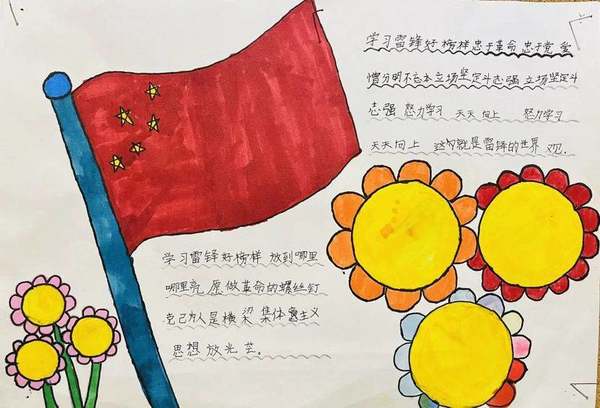 学习雷锋好榜样忠于革命 忠于党 爱
憎分明不忘本立场坚定斗志强 立场坚定斗
志强 努力学习 天天向上 努力学习
天天向上 这句就是雷锋的世界 观.
学习雷锋好榜样 放到哪里
哪里亮 原做革命的螺丝钉
克己为人是横梁 集体主义
思想 放光芒.